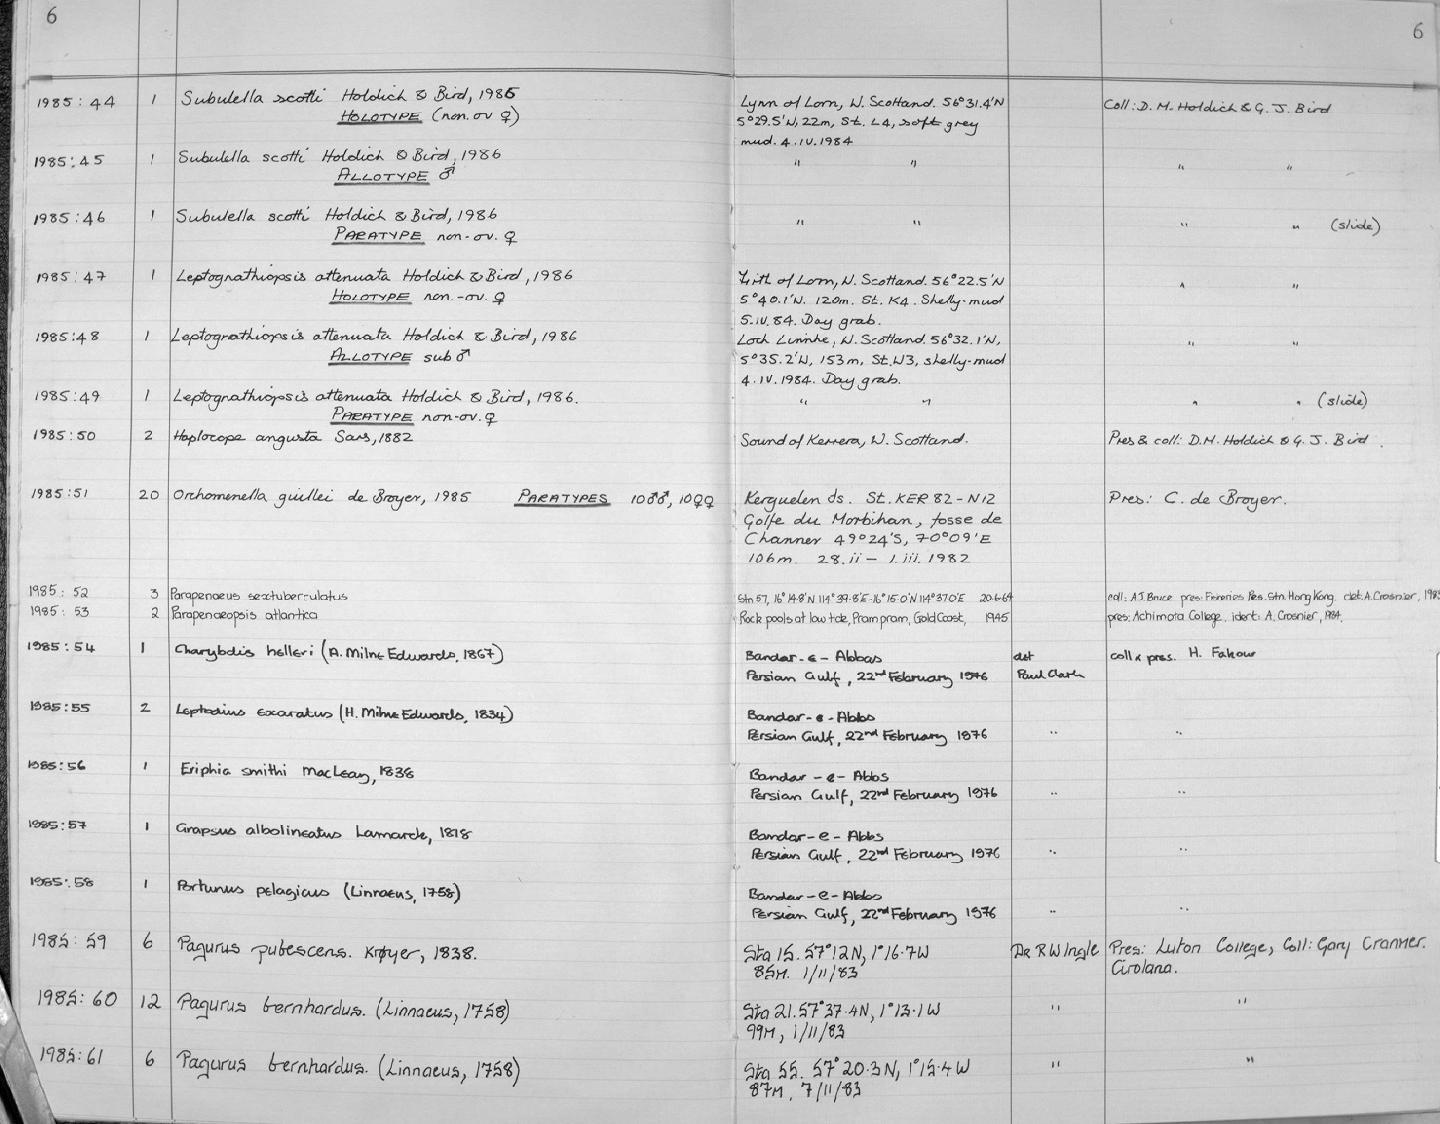 6
6
1985:44 1 Subulella scotti Holdich & Bird, 1986 Lynn of Lorn, W. Scotland. 56°31.4'N Coll: D. M. Holdich & G. J. Bird
HOLOTYPE (non.ov ♀) 5°29.5'N, 22m, St. L4, soft grey
mud. 4.IV.1984
1985:45 1 Subulella scotti Holdich & Bird, 1986 " " " "
ALLOTYPE ♂
1985:46 1 Subulella scotti Holdich & Bird, 1986 " " " " (slide)
PARATYPE non-ov. ♀
1985:47 1 Leptognathiopsis attenuata Holdich & Bird, 1986 Firth of Lorn, W. Scotland. 56°22.5'N " "
HOLOTYPE non.-ov. ♀ 5°40.1'W. 120m. St. K4. Shelly-mud
5.IV.84. Day grab.
1985:48 1 Leptognathiopsis attenuata Holdich & Bird, 1986 Loch Linnhe, W. Scotland. 56°32.1'N, " "
ALLOTYPE sub ♂ 5°35.2'W, 153m, St.W3, shelly-mud
4.IV.1984. Day grab.
1985:49 1 Leptognathiopsis attenuata Holdich & Bird, 1986. " " " " (slide)
PARATYPE non-ov. ♀
1985:50 2 Haplocope angusta Sars, 1882 Sound of Kerrera, W. Scotland. Pres & coll: D.M. Holdich & G. J. Bird.
1985:51 20 Orchomenella guillei de Broyer, 1985 PARATYPES 10♂♂, 10♀♀ Kerguelen Is. St. KER 82-N12 Pres: C. de Broyer.
Golfe du Morbihan, fosse de
Channer 49°24'S, 70°09'E
106m. 28.ii - 1.iii.1982
1985:52 3 Parapenaeus sextuberculatus Stn 57, 16°14.8'N 114°39.8'E-16°15.0'N 114°37.0'E 20.6.64 coll: A.J. Bruce pres: Fisheries Res. Stn. Hong Kong. det: A. Crosnier,
1985:53 2 Parapenaeopsis atlantica Rock pools at low tide, Prampram, Gold Coast, 1945 pres: Achimota College. ident: A. Crosnier, 1984.
1985:54 1 Charybdis helleri (A. Milne Edwards, 1867) Bandar-e-Abbas det coll & pres. H. Fahour
Persian Gulf, 22nd February 1976 Paul Clark
1985:55 2 Leptodius exaratus (H. Milne Edwards, 1834) Bandar-e-Abbs
Persian Gulf, 22nd February 1976 " "
1985:56 1 Eriphia smithi MacLeay, 1838 Bandar-e-Abbs
Persian Gulf, 22nd February 1976 " "
1985:57 1 Grapsus albolineatus Lamarck, 1818 Bandar-e-Abbs
Persian Gulf, 22nd February 1976 " "
1985:58 1 Portunus pelagicus (Linnaeus, 1758) Bandar-e-Abbs
Persian Gulf, 22nd February 1976 " "
1985:59 6 Pagurus pubescens. Krøyer, 1838. Sta 15. 57°12N, 1°16.7W Dr R W Ingle Pres: Luton College, Coll: Gary Cranmer.
85M. 1/11/83 Cirolana.
1985:60 12 Pagurus bernhardus. (Linnaeus, 1758) Sta 21. 57°37.4N, 1°13.1W " "
99M, 1/11/83
1985:61 6 Pagurus bernhardus. (Linnaeus, 1758) Sta 55. 57°20.3N, 1°15.4W " "
87M. 7/11/83